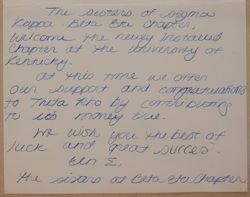 The sisters of Sigma
Kappa Beta Eta Chapter,
Welcome the newly installed
Chapter at the University of
Kentucky.
At this time we offer
our support and congratulations
to Theta Rho by contributing
to its money tree.
We wish you the best of
luck and great success.
In Σ.
the sisters at Beta Eta Chapter